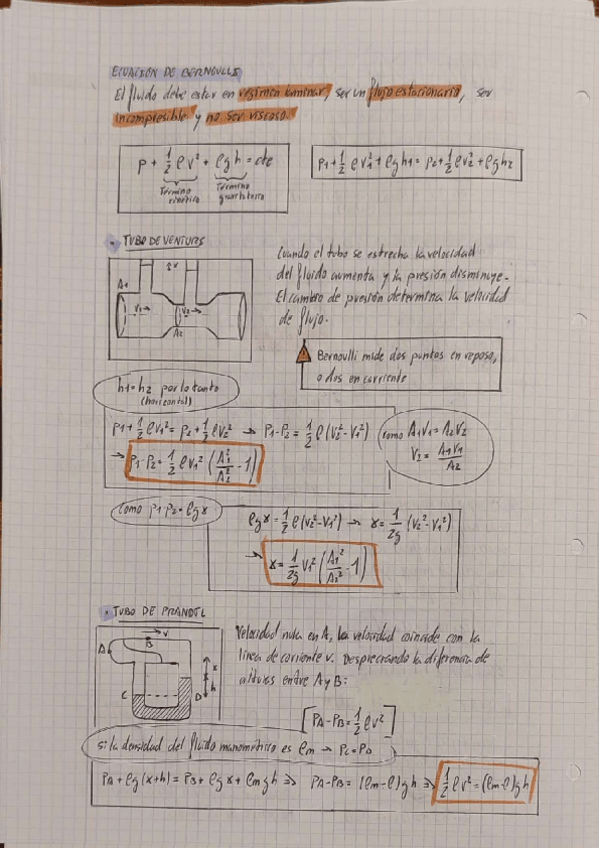 ECUACIÓN DE BERNOULLI
El fluido debe estar en régimen laminar, ser un flujo estacionario, ser
incompresible y no ser viscoso.
p + 1/2 ρv² + ρgh = cte
Término cinético
Término gravitatorio
p1 + 1/2 ρv1² + ρgh1 = p2 + 1/2 ρv2² + ρgh2
• TUBO DE VENTURI
A1
x
v1 →
v2 →
A2
Cuando el tubo se estrecha la velocidad
del fluido aumenta y la presión disminuye.
El cambio de presión determina la velocidad
de flujo.
Bernoulli mide dos puntos en reposo,
o dos en corriente
h1 = h2 por lo tanto
(horizontal)
p1 + 1/2 ρv1² = p2 + 1/2 ρv2² → P1-P2 = 1/2 ρ(v2²-v1²)
→ P1-P2 = 1/2 ρv1² (A1²/A2² - 1)
como A1v1 = A2v2
v2 = A1v1/A2
como p1-p2 = ρgx
ρgx = 1/2 ρ(v2²-v1²) → x = 1/2g (v2²-v1²)
→ x = 1/2g v1² (A1²/A2² - 1)
• TUBO DE PRANDTL
v
B
A
x
h
C
D
Velocidad nula en A, la velocidad coincide con la
línea de corriente v. Despreciando la diferencia de
alturas entre A y B:
[PA-PB = 1/2 ρv²]
si la densidad del fluido manométrico es ρm → Pc = PD
PA + ρg(x+h) = PB + ρgx + ρmgh ⇒ PA-PB = (ρm-ρ)gh ⇒ 1/2 ρv² = (ρm-ρ)gh